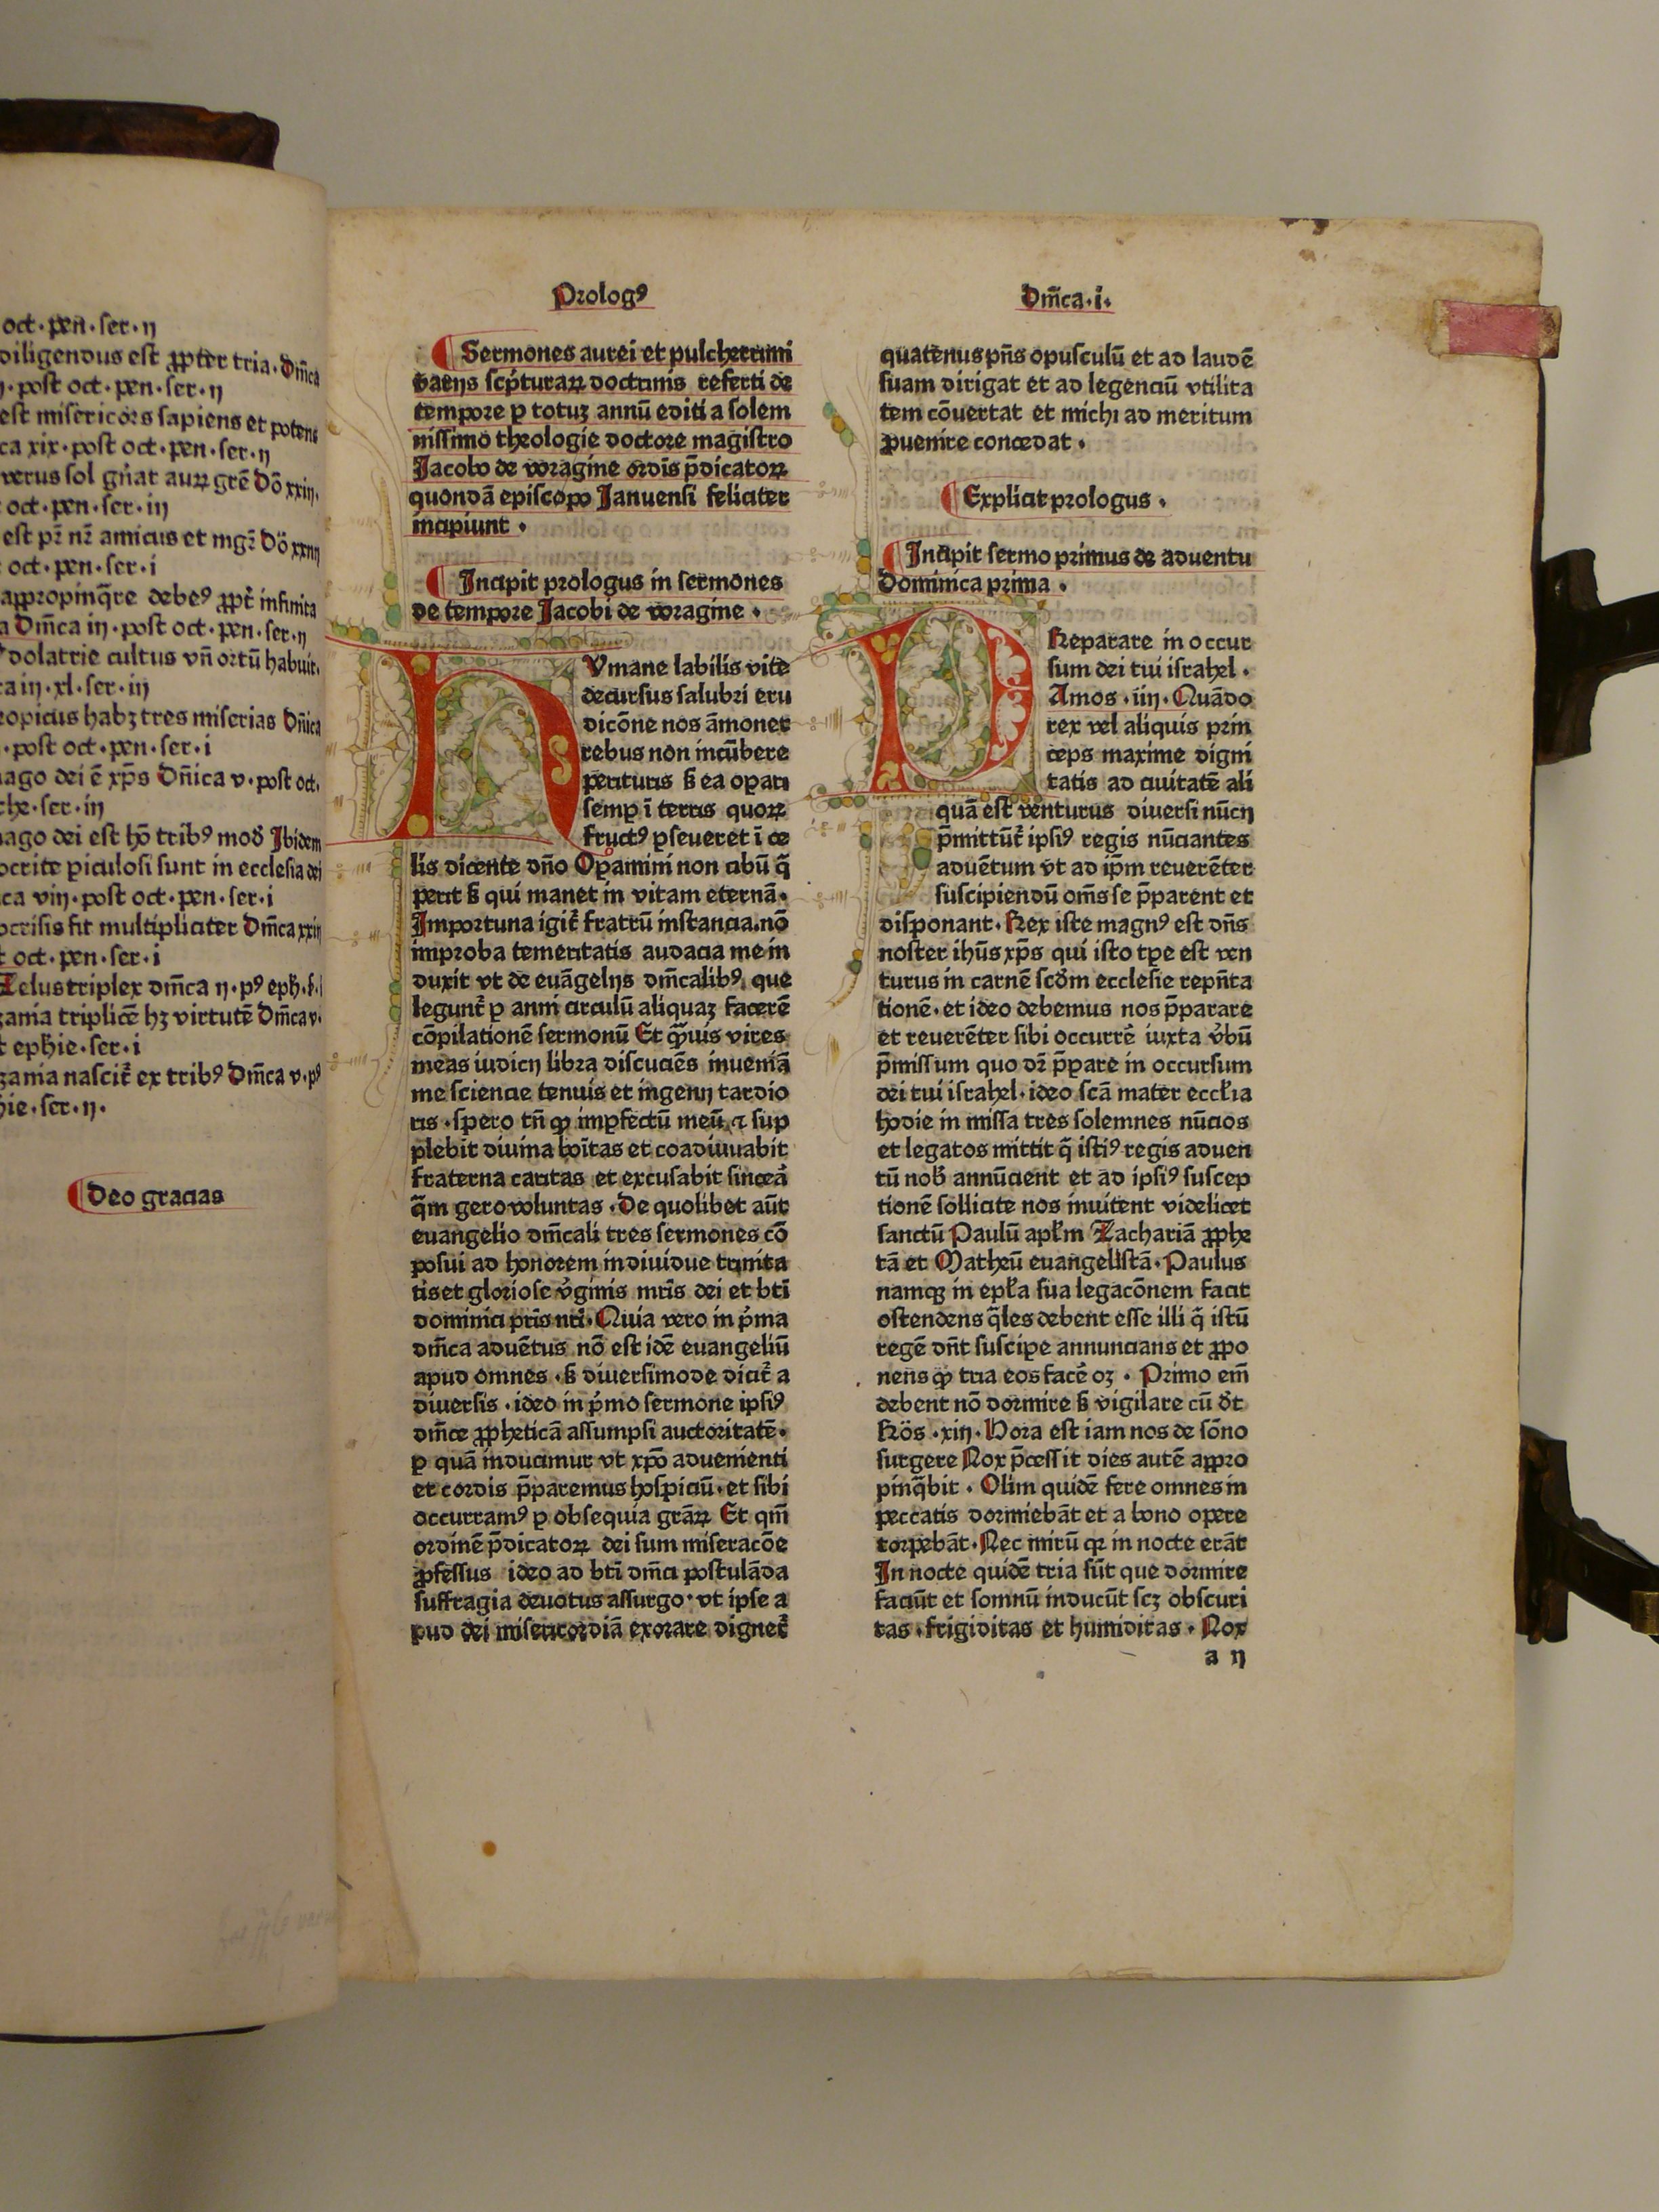 oct·pen·ser·ij
diligendus est ꝓpter tria·Dm̄ca
ij·post oct·pen·ser·ij
est misericors sapiens et potens
ca xix·post oct·pen·ser·ij
verus sol gn̄at auꝝ grē Dō xxiij·
oct·pen·ser·iij
est pr̄ nr̄ amicus et mgr̄ Dō xxiiij
oct·pen·ser·i
appropinq̄re debeꝰ ꝓpt̄ infinita
a Dm̄ca iij·post oct·pen·ser·ij
dolatrie cultus vn̄ ortū habuit·
ca iij·xl·ser·iij
ropicus habꝫ tres miserias Dn̄ica
·post oct·pen·ser·i
ago dei ē xp̄s Dn̄ica v·post oct·
che·ser·iij
ago dei est hō tribꝰ mod̄ Ibidem
ocrite ꝑiculosi sunt in ecclesia dei
ca viij·post oct·pen·ser·i
ocrisis fit multipliciter Dm̄ca xxiij
t oct·pen·ser·i
Zelus triplex dm̄ca ij·pꝰ eph·s·i
zania triplicē hꝫ virtutē Dm̄ca v·
t ephie·ser·i
zania nascit̄ ex tribꝰ Dm̄ca v·pꝰ
hie·ser·ij·
Deo gracias
Prologꝰ
Sermones aurei et pulcherrimi
varijs sc̄pturaꝝ doctrinis referti de
tempore ꝑ totuꝫ annū editi a solem
nissimo theologie doctore magistro
Jacobo de voragine ordīs p̄dicatoꝝ
quondā episcopo Januensi feliciter
incipiunt·
Incipit prologus in sermones
de tempore Jacobi de voragine·
HVmane labilis vite
decursus salubri eru
dicōne nos āmonet
rebus non incūbere
perituris ß ea oꝑari
semꝑ ī terris quoꝝ
fructꝰ ꝑseueret ī ce
lis dicente dn̄o Oꝑamini non cibū q̄
perit ß qui manet in vitam eternā·
Importuna igit̄ fratrū instancia·nō
improba temeritatis audacia me in
duxit vt de euāgelijs dm̄calibꝰ, que
legunt̄ ꝑ anni circulū aliquaꝫ facerē
cōpilationē sermonū Et q̄uis vires
meas iudicij libra discuciēs inueniā
me sciencie tenuis et ingenij tardio
ris·spero tn̄ ꝙ imꝑfectū meū, ⁊ sup
plebit diuina boītas et coadiuuabit
fraterna caritas et excusabit sincera
q̄m gero voluntas·De quolibet aūt
euangelio dm̄cali tres sermones cō
posui ad honorem indiuidue trinita
tis et gloriose v̄ginis mr̄is dei et btī
dominici pr̄is nr̄i·Quia vero in p̄ma
dm̄ca aduētus nō est idē euangeliū
apud omnes·ß diuersimode dicit̄ a
diuersis·ideo in p̄mo sermone ipsiꝰ
dm̄ce ꝓpheticā assumpsi auctoritatē·
ꝑ quā inducimur vt xp̄o aduenienti
et cordis p̄paremus hospiciū·et sibi
occurramꝰ ꝑ obsequia grāꝝ Et qm̄
ordinē p̄dicatoꝝ dei sum miseracōe
ꝓfessus ideo ad btī dm̄ci postulāda
suffragia deuotus assurgo·vt ipse a
pud dei misericordiā exorare dignet̄
Dm̄ca·i·
quatenus pn̄s opusculū et ad laudē
suam dirigat et ad legenciū vtilita
tem cōuertat et michi ad meritum
ꝓuenire concedat·
Explicit prologus·
Incipit sermo primus de aduentu
Dominica prima·
PReparare in occur
sum dei tui israhel·
Amos·iiij·Quādo
rex vel aliquis prin
ceps maxime digni
tatis ad ciuitatē ali
quā est venturus diuersi nūcij
p̄mittūt̄ ipsiꝰ regis nūciantes
aduētum vt ad ip̄m reuerēter
suscipiendū om̄s se p̄parent et
disponant·Rex iste magnꝰ est dn̄s
noster ihūs xp̄s qui isto tꝑe est ven
turus in carnē scd̄m ecclesie repn̄ta
tionē·et ideo debemus nos p̄parare
et reuerēter sibi occurrē iuxta v̄bū
p̄missum quo dr̄ p̄ꝑare in occursum
dei tui israhel·ideo scā mater eccl̄ia
hodie in missa tres solemnes nūcios
et legatos mittit q̄ istiꝰ regis aduen
tū nob̄ annūcient et ad ipsiꝰ suscep
tionē sollicite nos inuitent videlicet
sanctū Paulū apl̄m Zachariā ꝓphe
tā et Matheū euangelistā·Paulus
namqꝫ in epl̄a sua legacōnem facit
ostendens q̄les debent esse illi q̄ istū
regē dn̄t susciꝑe annuncians et ꝓpo
nens ꝙ tria eos facē oꝫ· Primo em̄
debent nō dormire ß vigilare cū d̄t
Rōs·xiij·Hora est iam nos de sōno
surgere Nox p̄cessit dies autē appro
pinq̄bit·Olim quidē fere omnes in
peccatis dormiebāt et a bono opere
torpebāt·Nec mirū qꝛ in nocte erāt
In nocte quidē tria sūt que dormire
faciūt et somnū inducūt scꝫ obscuri
tas·frigiditas et humiditas·Nox
a ij